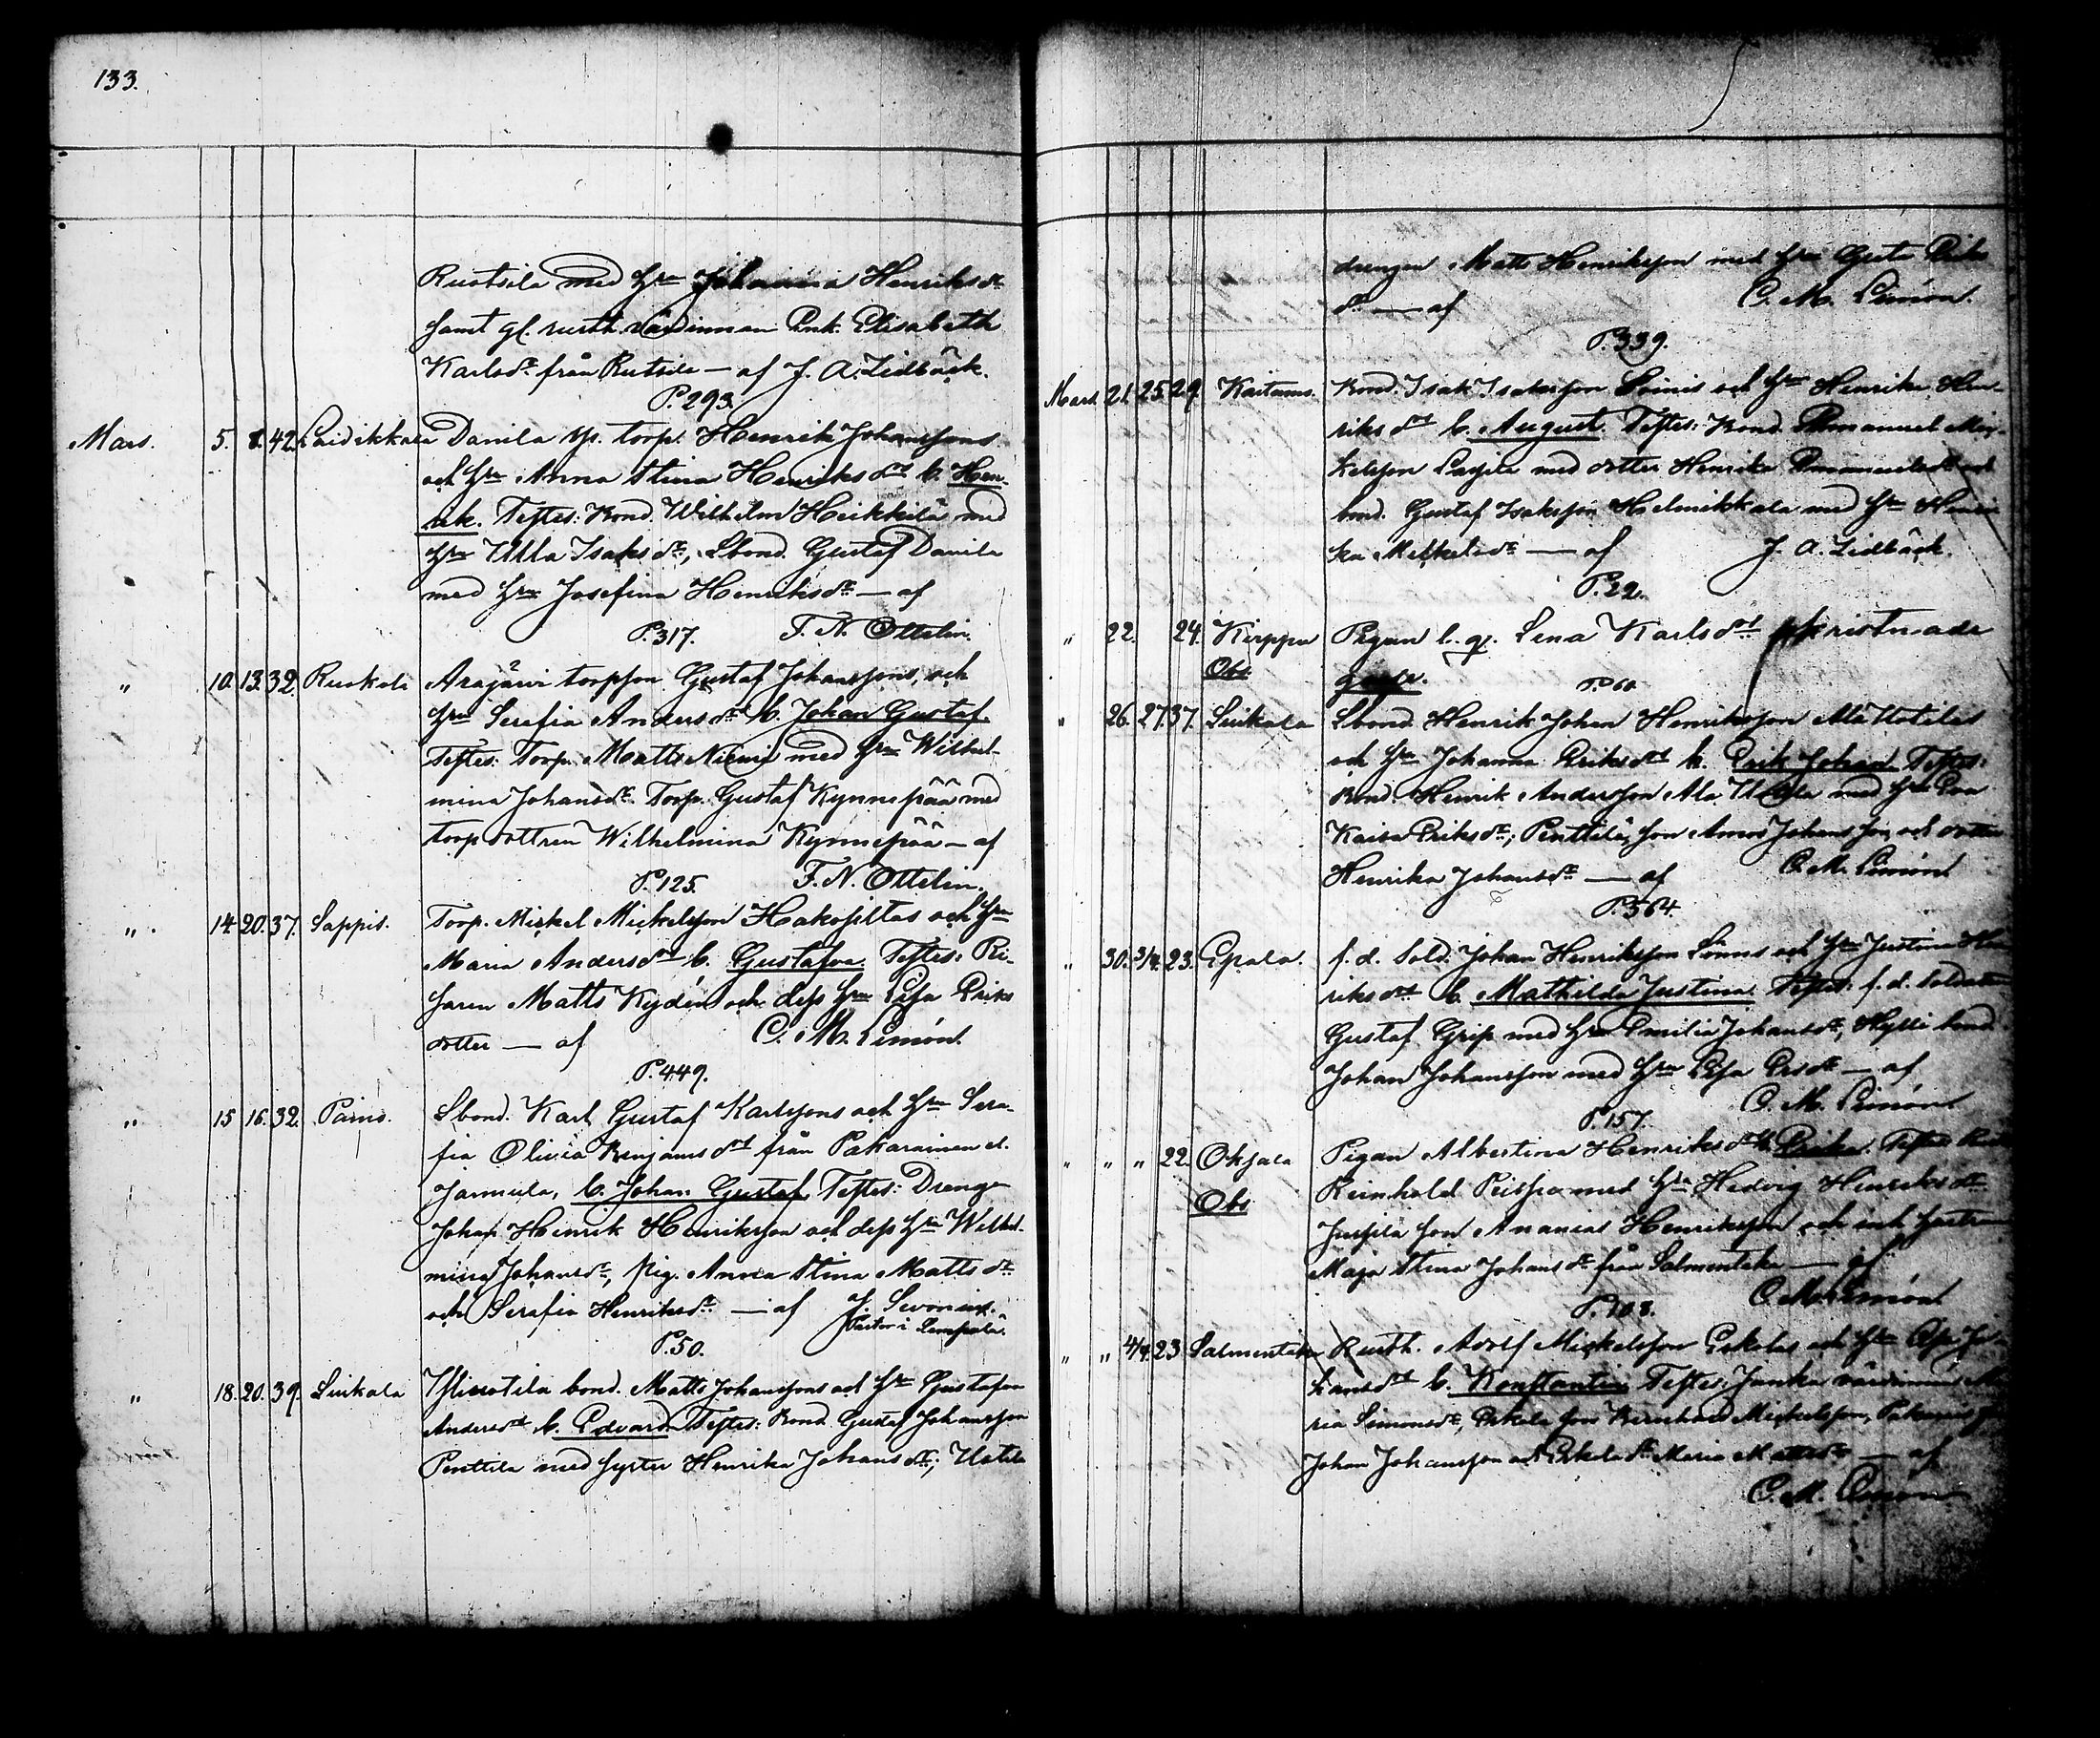 133.
Ruotsila med hru Johanna Henriksdr
samt gl. rusth. värdinnan Enk. Elisabeth
Karlsdr från Rutsila — af J. A. Lidbäck.
P. 293.
Mars. 5. 8. 42. Laidikkala Danila sp. torp. Henrik Johanssons
och hru Anna Stina Henriksdr b. Hen-
rik. Testes: Bond. Wilhelm Heikkilä med
hru Ulla Isaksdr, Sbond. Gustaf Danila
med hru Josefina Henriksdr — af
P. 317. F. N. Ottelin.
" 10. 13. 32. Ruokola Arajärvi torpson Gustaf Johanssons, och
hru Serafia Andersdr b. Johan Gustaf.
Testes: Torp. Matts Niemi med hru Wilhel-
mina Johansdr. Torp. Gustaf Kynnepää med
torp. dottren Wilhelmina Kynnepää — af
P. 125. F. N. Ottelin.
" 14. 20. 37. Sappis. Torp. Mickel Mickelsson Hakosiltas och hru
Maria Andersdr b. Gustafva. Testes: Ri-
faren Matts Rydén och dess hru Lisa Eriks
dotter — af C. M. Limón.
P. 449.
" 15 16. 32. Paino. Sbond. Karl Gustaf Karlssons och hru Sera-
fia Olivia Benjamsdr från Pakarainen et.
Jammula, b. Johan Gustaf. Testes: Dreng
Johan Henrik Henriksson och dess hru Wilhel-
mina Johansdr, pig. Anna Stina Mattsdr
och Serafia Henriksdr — af J. Sevonius.
Pastor i Lempälä.
P. 50.
" 18. 20. 39. Suikala Yliuotila bond. Matts Johanssons och hru Gustafva
Andersdr b. Edvard. Testes: Bond. Gustaf Johansson
Penttila med syster Henrika Johansdr, Uotila
drengen Matts Henriksson med hru Greta Eriks
dr — af C. M. Limón.
P. 339.
Mars. 21. 25. 29. Kaitams. Bond. Isak Isaksson Soinis och hru Henrika Hen-
riksdr b. August. Testes: Bond. Emanuel Mic-
kelsson med dotter Henrika Emanuelsdr och
bond. Gustaf Isaksson Helmikkala med hru Henri
ka Mickelsdr — af J. A. Lidbäck.
P. 22.
" 22. 24. Kirppu Pigan l. q. Lena Karlsdr christnade
Obs. gosse.
P. 60.
" 26. 27. 37. Suikala Sbond. Henrik Johan Henriksson Ala Uotilas
och hru Johanna Eriksdr b. Erik Johan. Testes:
Bond. Henrik Andersson Ala Uotila med hru Eva
Kaisa Eriksdr; Penttilä, son Amos Johansson och dotter
Henrika Johansdr — af C. M. Limón
P. 564.
" 30. 3/4. 23. Epala. f. d. Sold. Johan Henriksson Lönns och hru Justina Hen
riksdr b. Mathilda Justina. Testes: f. d. Soldaten
Gustaf Grip med hru Emilia Johansdr, Hylli bond
Johan Johansson med hru Lisa Ersdr — af
P. 157. C. M. Limón
" " " 22. Oksala Pigan Albertina Henriksdr b. Erika. Testes: Bond
Obs Reinhold Peispa med hru Hedvig Henriksdr
Jussila son Ananias Henriksson och inh. hustru
Maja Stina Johansdr från Salmentaka — af
P. 108. C. M. Limón
" " 4/4. 23 Salmentaka Rusth. Adolf Mickelsson Eskolas och hru Lisa Jo-
hansdr b. Konstantin. Testes: Junka värdinnan Ma-
ria Simonsdr, Eskola son Bernhard Mickelsson,
Johan Johansson och Eskola dr Maria Mattsdr — af
C. M. Limón